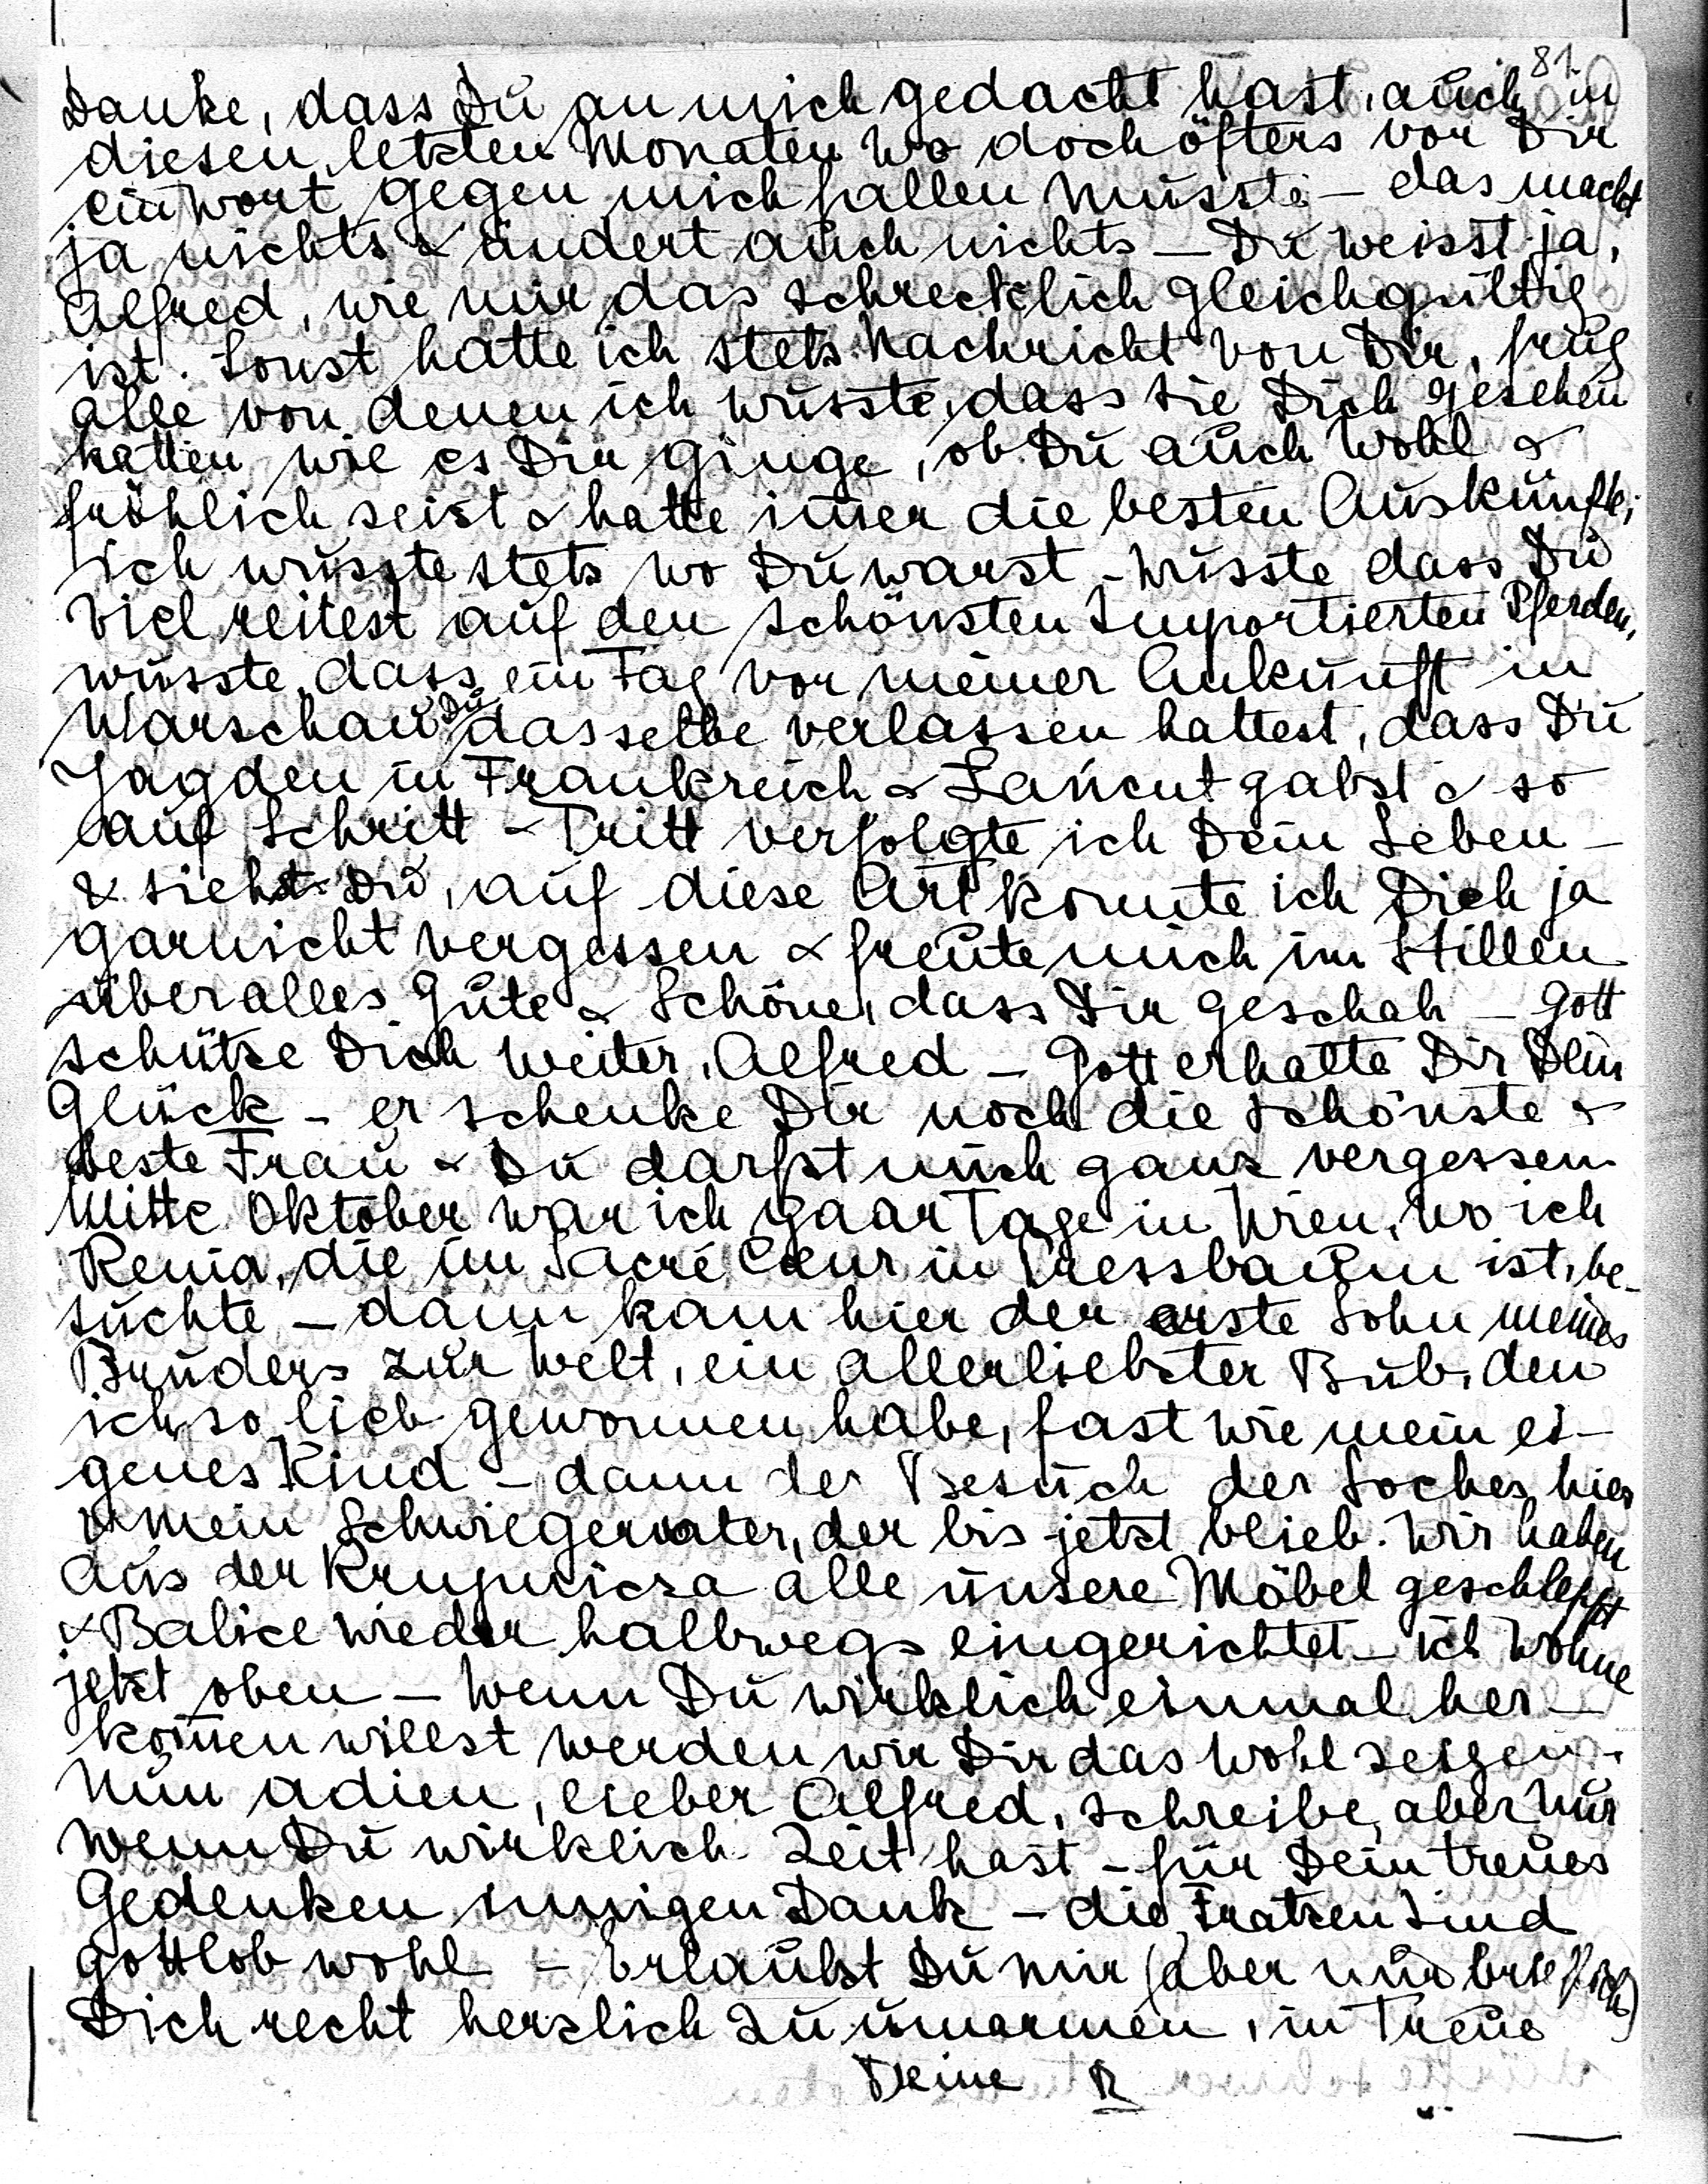 81.
Danke, dass Du an mich gedacht hast, auch in
diesen letzten Monaten wo doch öfters vor Dir
ein Wort gegen mich fallen musste – das macht
ja nichts & ändert auch nichts – Du weisst ja,
Alfred, wie mir das schrecklich gleichgültig
ist. Sonst hatte ich stets Nachricht von Dir, frug
alle von denen ich wusste, dass sie Dich gesehen
hatten wie es Dir ginge, ob Du auch wohl &
fröhlich seist & hatte im̄er die besten Auskünfte;
ich wusste stets wo Du warst – wusste dass Du
viel reitest auf den schönsten Importierten Pferden,
wusste dass ein Tag vor meiner Ankunft in
Warschau Du dasselbe verlassen hattest, dass Du
Jagden in Frankreich & Łańcut gabst & so
auf Schritt & Tritt verfolgte ich Dein Leben –
& siehst Du, auf diese Art konnte ich Dich ja
garnicht vergessen & freute mich im Stillen
über alles Gute & Schöne, dass Dir geschah – Gott
schütze Dich weiter, Alfred – Gott erhalte Dir Dein
Glück – er schenke Dir noch die schönste &
beste Frau & Du darfst mich ganz vergessen.
Mitte Oktober war ich paar Tage in Wien, wo ich
Renia, die im Sacré Cœur in Pressbaum ist, be-
suchte – dann kam hier der erste Sohn meines
Bruders zur Welt, ein allerliebster Bub, den
ich so lieb gewonnen habe, fast wie mein ei-
genes Kind – dann der Besuch der Soches hier
& mein Schwiegervater, der bis jetzt blieb. Wir haben
aus der Krupnicza alle unsere Möbel geschleppt
& Balice wieder halbwegs eingerichtet – ich wohne
jetzt oben – wenn Du wirklich einmal her-
kom̄en willst werden wir Dir das wohl zeigen.
Nun adieu, lieber Alfred, schreibe, aber nur
wenn Du wirklich Zeit hast – für Dein treues
Gedenken innigen Dank – die Fratzen sind
gottlob wohl – Erlaubst Du mir (aber nur brieflich)
Dich recht herzlich zu umarmen, in Treue
Deine R